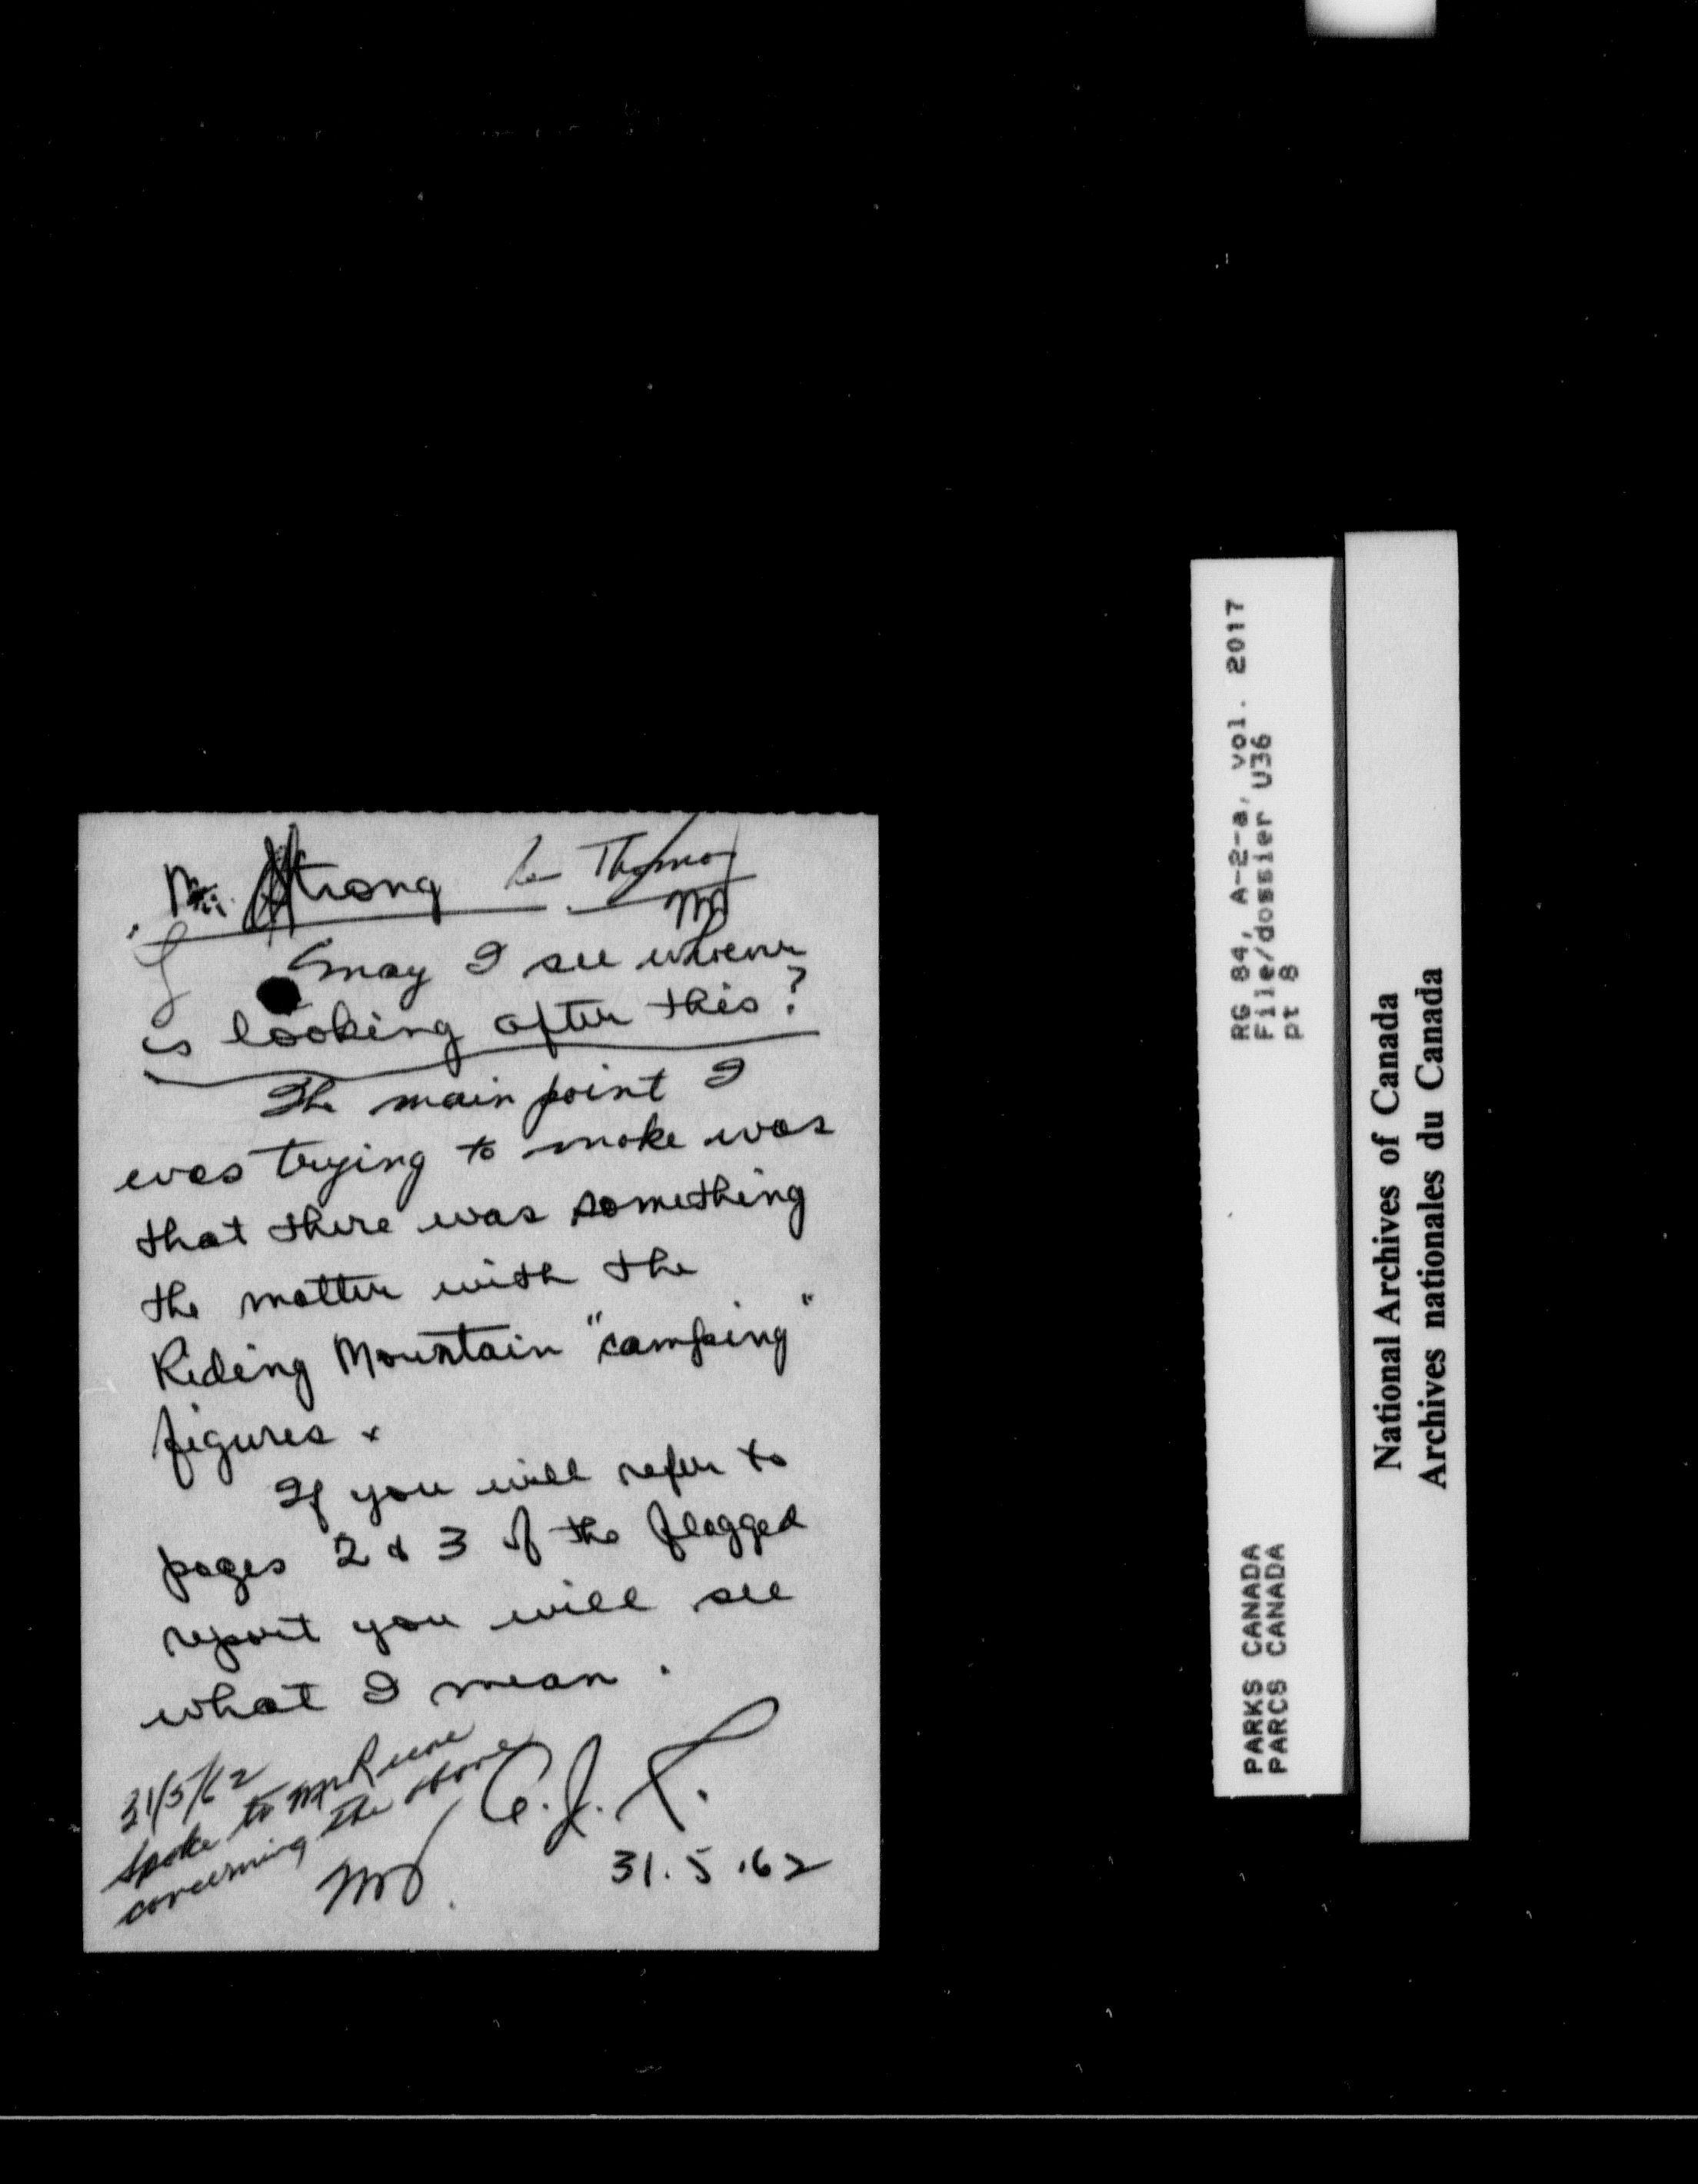 Mr. Strong Mr Thomas
may I see whoever
is looking after this?
The main point I
was trying to make was
that there was something
the matter with the
Riding Mountain "camping"
figures.
If you will refer to
pages 2 & 3 of the flagged
report you will see
what I mean.
31/5/62
Spoke to
concerning the above
31.5.62
RG 84, A-2-a, vol. 2017
File/dossier U36
pt 8
PARKS CANADA
PARCS CANADA
National Archives of Canada
Archives nationales du Canada